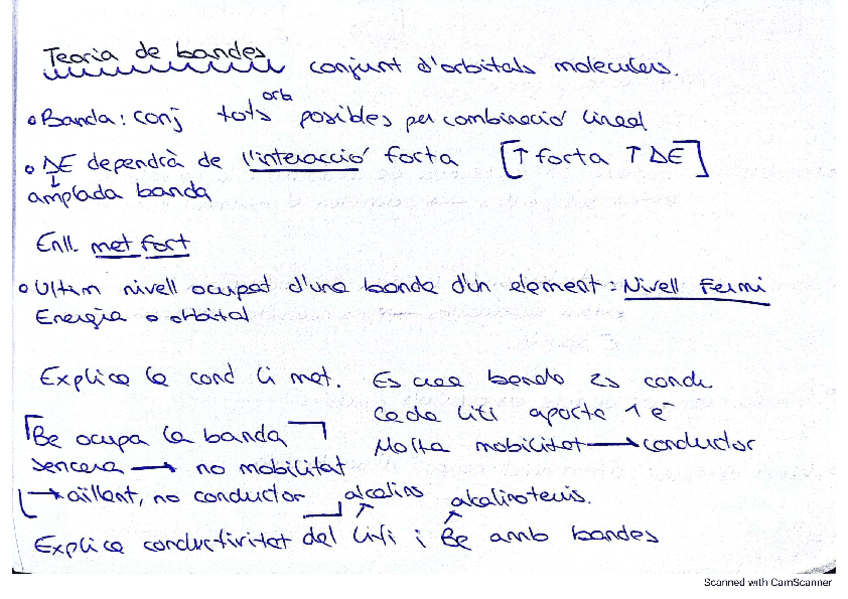 Teoria de bandes conjunt d'orbitals moleculars.
orb
• Banda: conj tots posibles per combinació lineal
• ΔE dependrà de l'interacció forta [↑ forta ↑ ΔE]
↓
amplada banda
Enll. met fort
• Ultim nivell ocupat d'una banda d'un element: Nivell Fermi
Energia o orbital
Explica la cond Li met. Es crea banda 2s condu.
Cada liti aporta 1 e⁻
Be ocupa la banda
Molta mobilitat → conductor
sencera → no mobilitat
→ aïllant, no conductor
alcalins alcalinoterris.
Explica conductivitat del Liti i Be amb bandes
Scanned with CamScanner